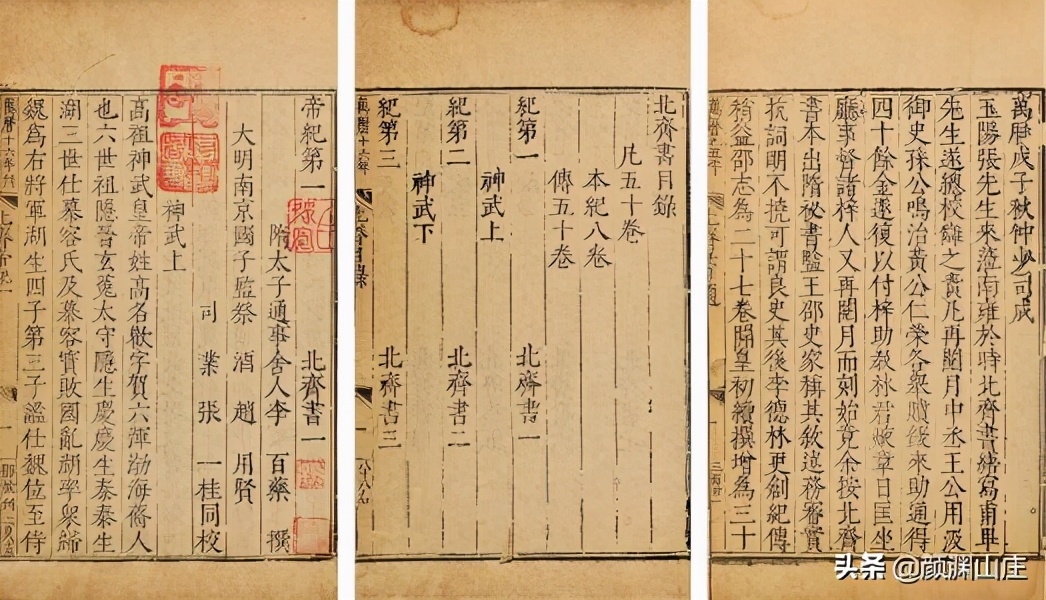 萬曆戊子秋仲少司成
玉陽張先生來涖南雍於時北齊書繕寫甫畢
先生遂總校讎之責凡再閱月中丞王公用汲
御史孫公鳴治黃公仁榮各 贖鍰來助通得
四十餘金遂復以付梓助敎林君煥章日匡坐
廳事督諸梓人又再閱月而刻始竟余按北齊
書本出隋祕書監王邵史家稱其敘述務審實
抗詞明不撓可謂良史其後李德林更創紀傳
稍益邵志為二十七卷開皇初續撰增為三十
北齊書目錄
凡五十卷
本紀八卷
傳五十卷
紀第一 北齊書一
神武上
紀第二 北齊書二
神武下
紀第三 北齊書三
帝紀第一 北齊書一
隋太子通事舍人李百藥撰
大明南京國子監祭酒趙用賢
司業張一桂同校
神武上
高祖神武皇帝姓高名歡字賀六渾渤海蓨人
也六世祖隱晉玄菟太守隱生慶慶生泰泰生
湖三世仕慕容氏及慕容寶敗國亂湖率衆歸
魏爲右將軍湖生四子第三子謐仕魏位至侍
萬曆十六年刊
头条 @颜渊山庄